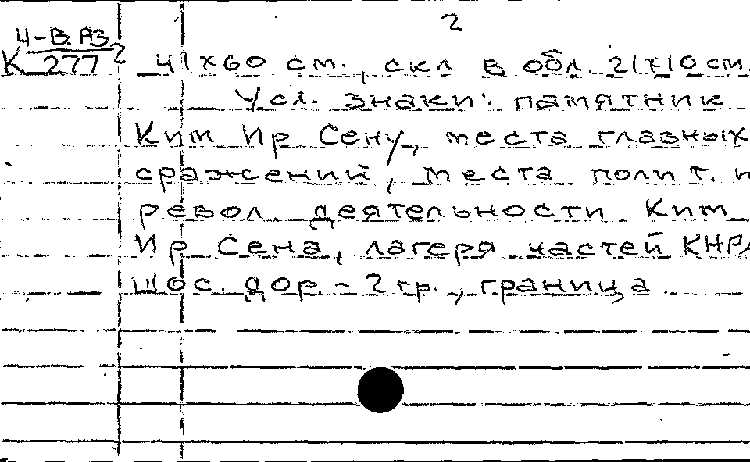 2
4-В.АЗ
К 277 2 41×60 см., скл в обл. 21×10 см.
Усл. знаки: памятник
Ким Ир Сену, места главных
сражений, места полит. и
револ. деятельности Ким
Ир Сена, лагеря частей КНРА
шос. дор. – 2 гр., граница